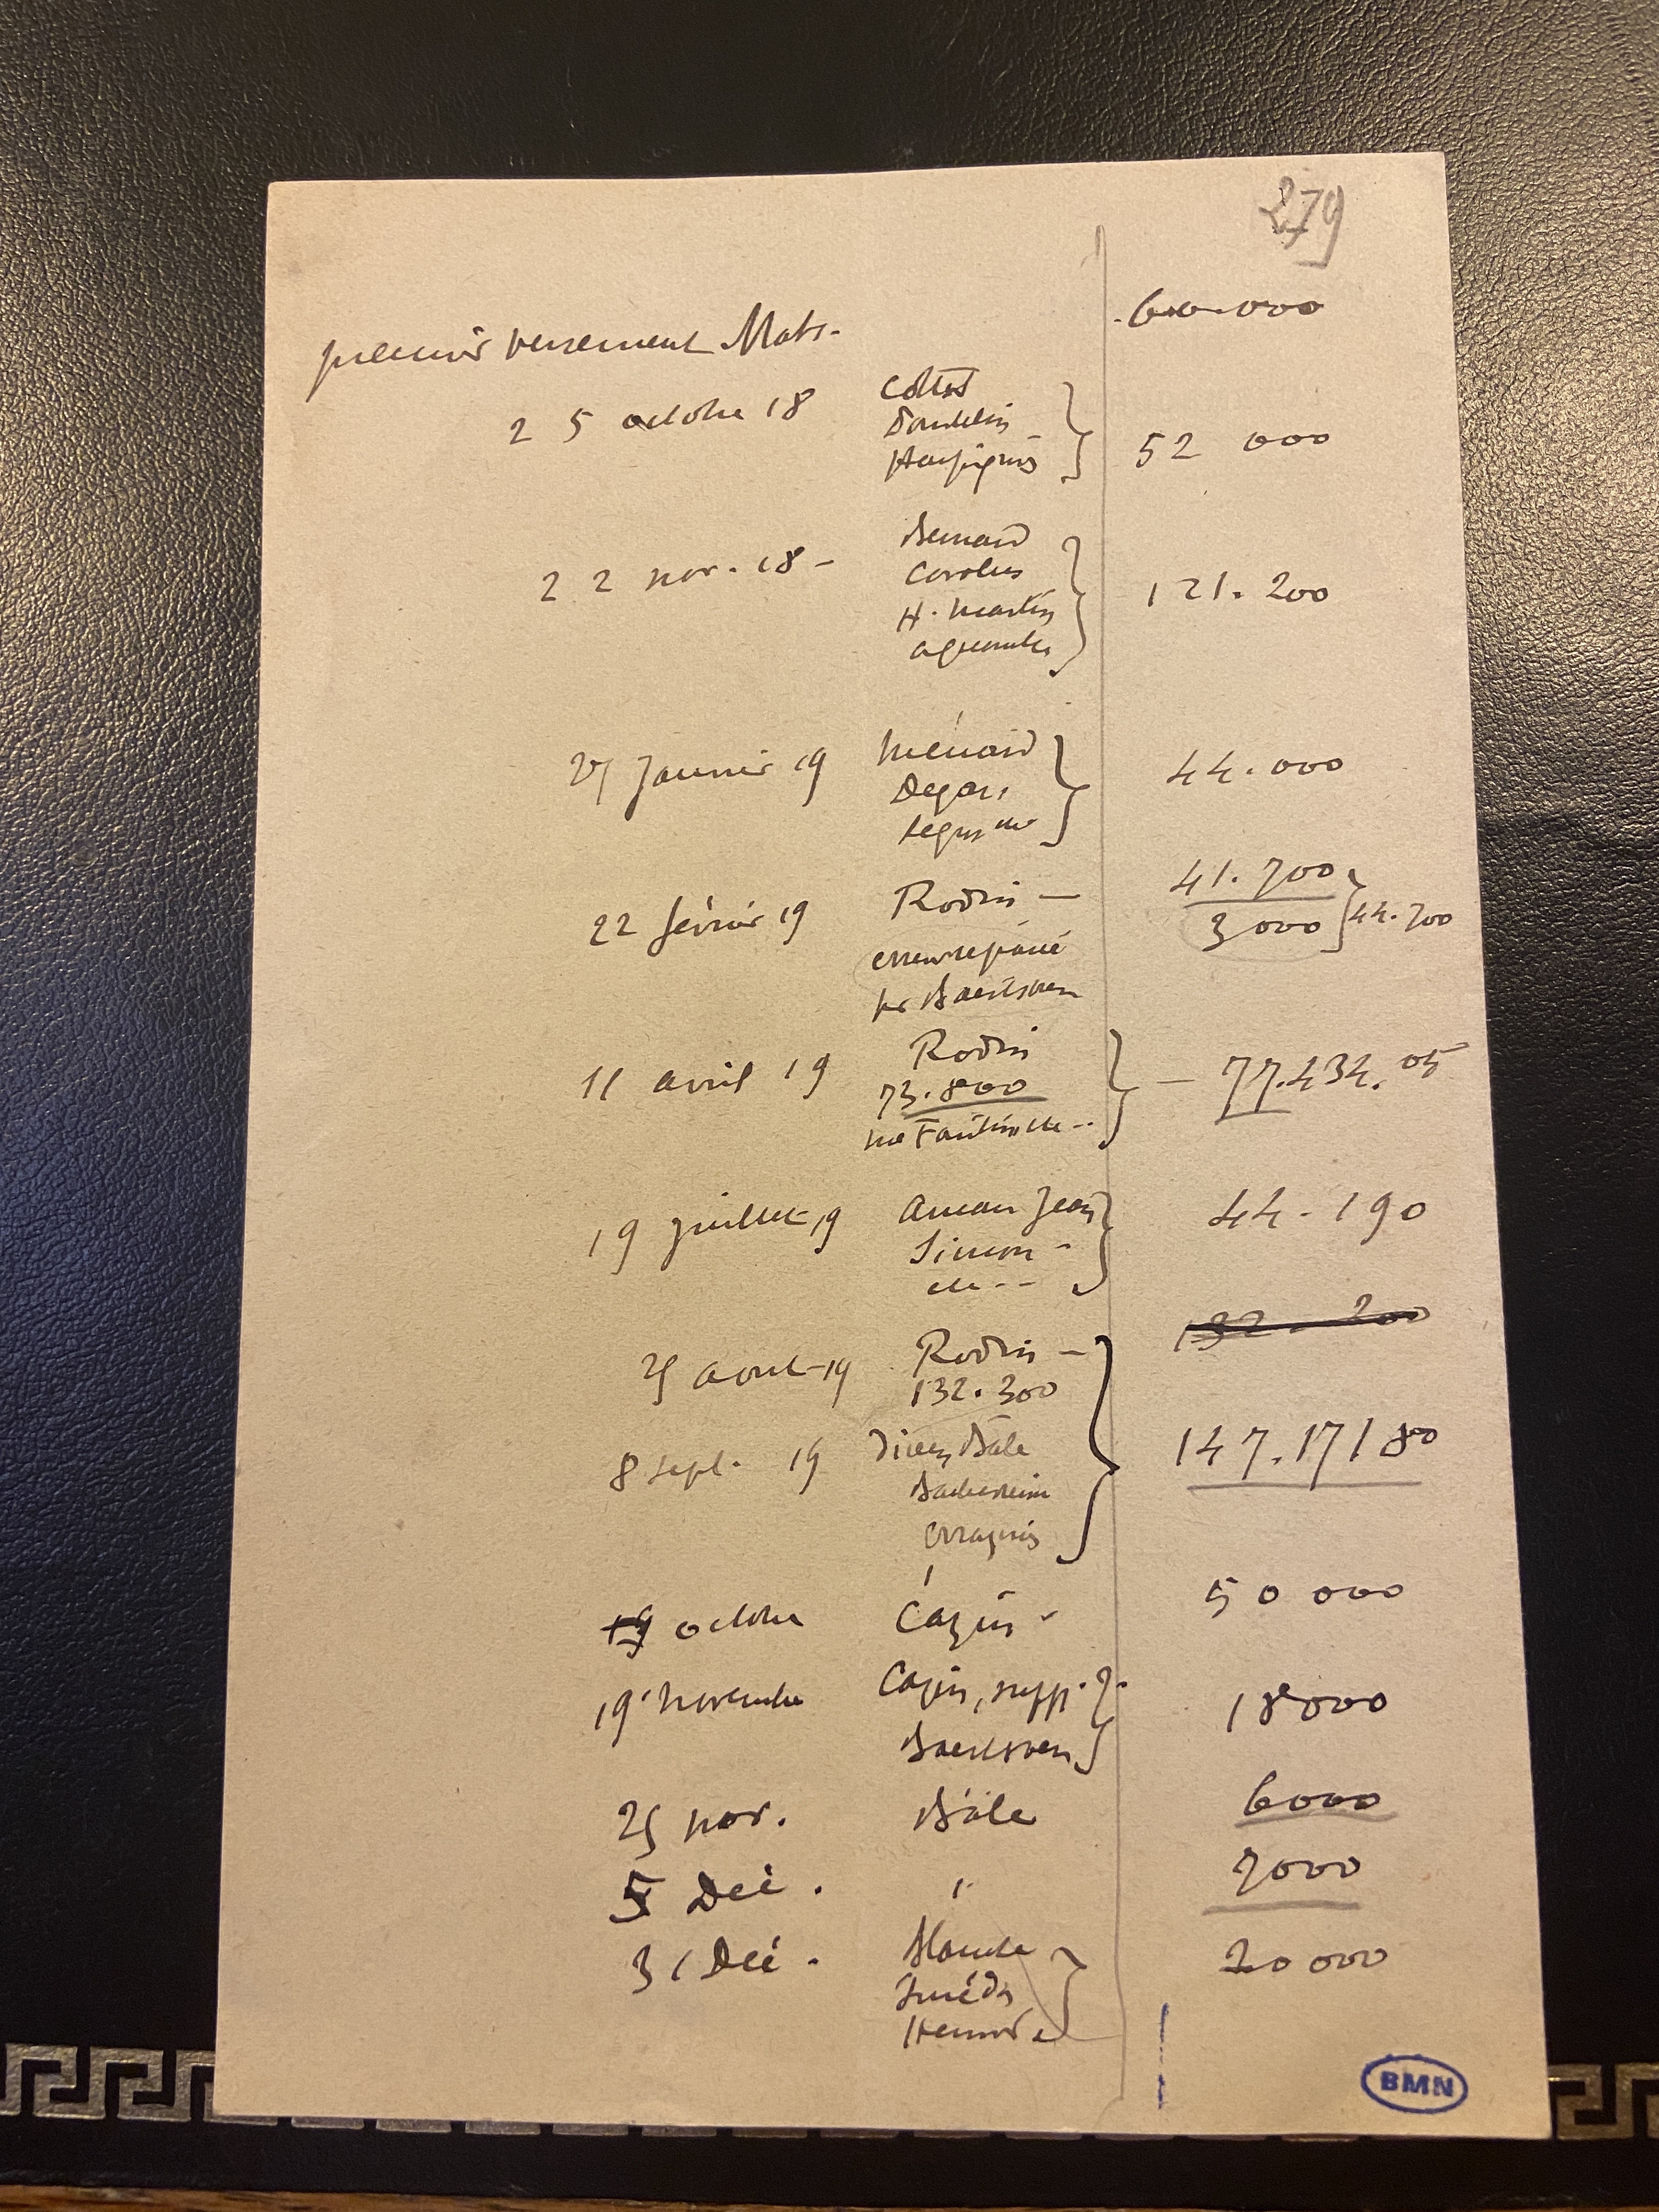 279
premier versement Mats. 60.000
Cottet
25 octobre 18
Harpignies 52 000
Besnard
22 nov. 18 - Carolus
H. Martin 121.200
Ménard
27 Janvier 19 Degas 44.000
Rodin - 41.700
22 février 19 3000 44.700
erreur réparée
pr Baertsoen
Rodin
11 avril 19 73.800 - 77.434.05
Aman Jean 44.190
19 juillet 19 Simon -
etc --
132.200
25 août 19 Rodin -
132.300
8 sept. 19 divers Bâle 147.171 80
50 000
19 octobre Cazin -
19 novembre Cazin, supp. 18000
Baertsoen
25 nov. Bâle 6000
5 Déc. " 7000
31 Déc. Blanche 20 000
Smédts
BMN